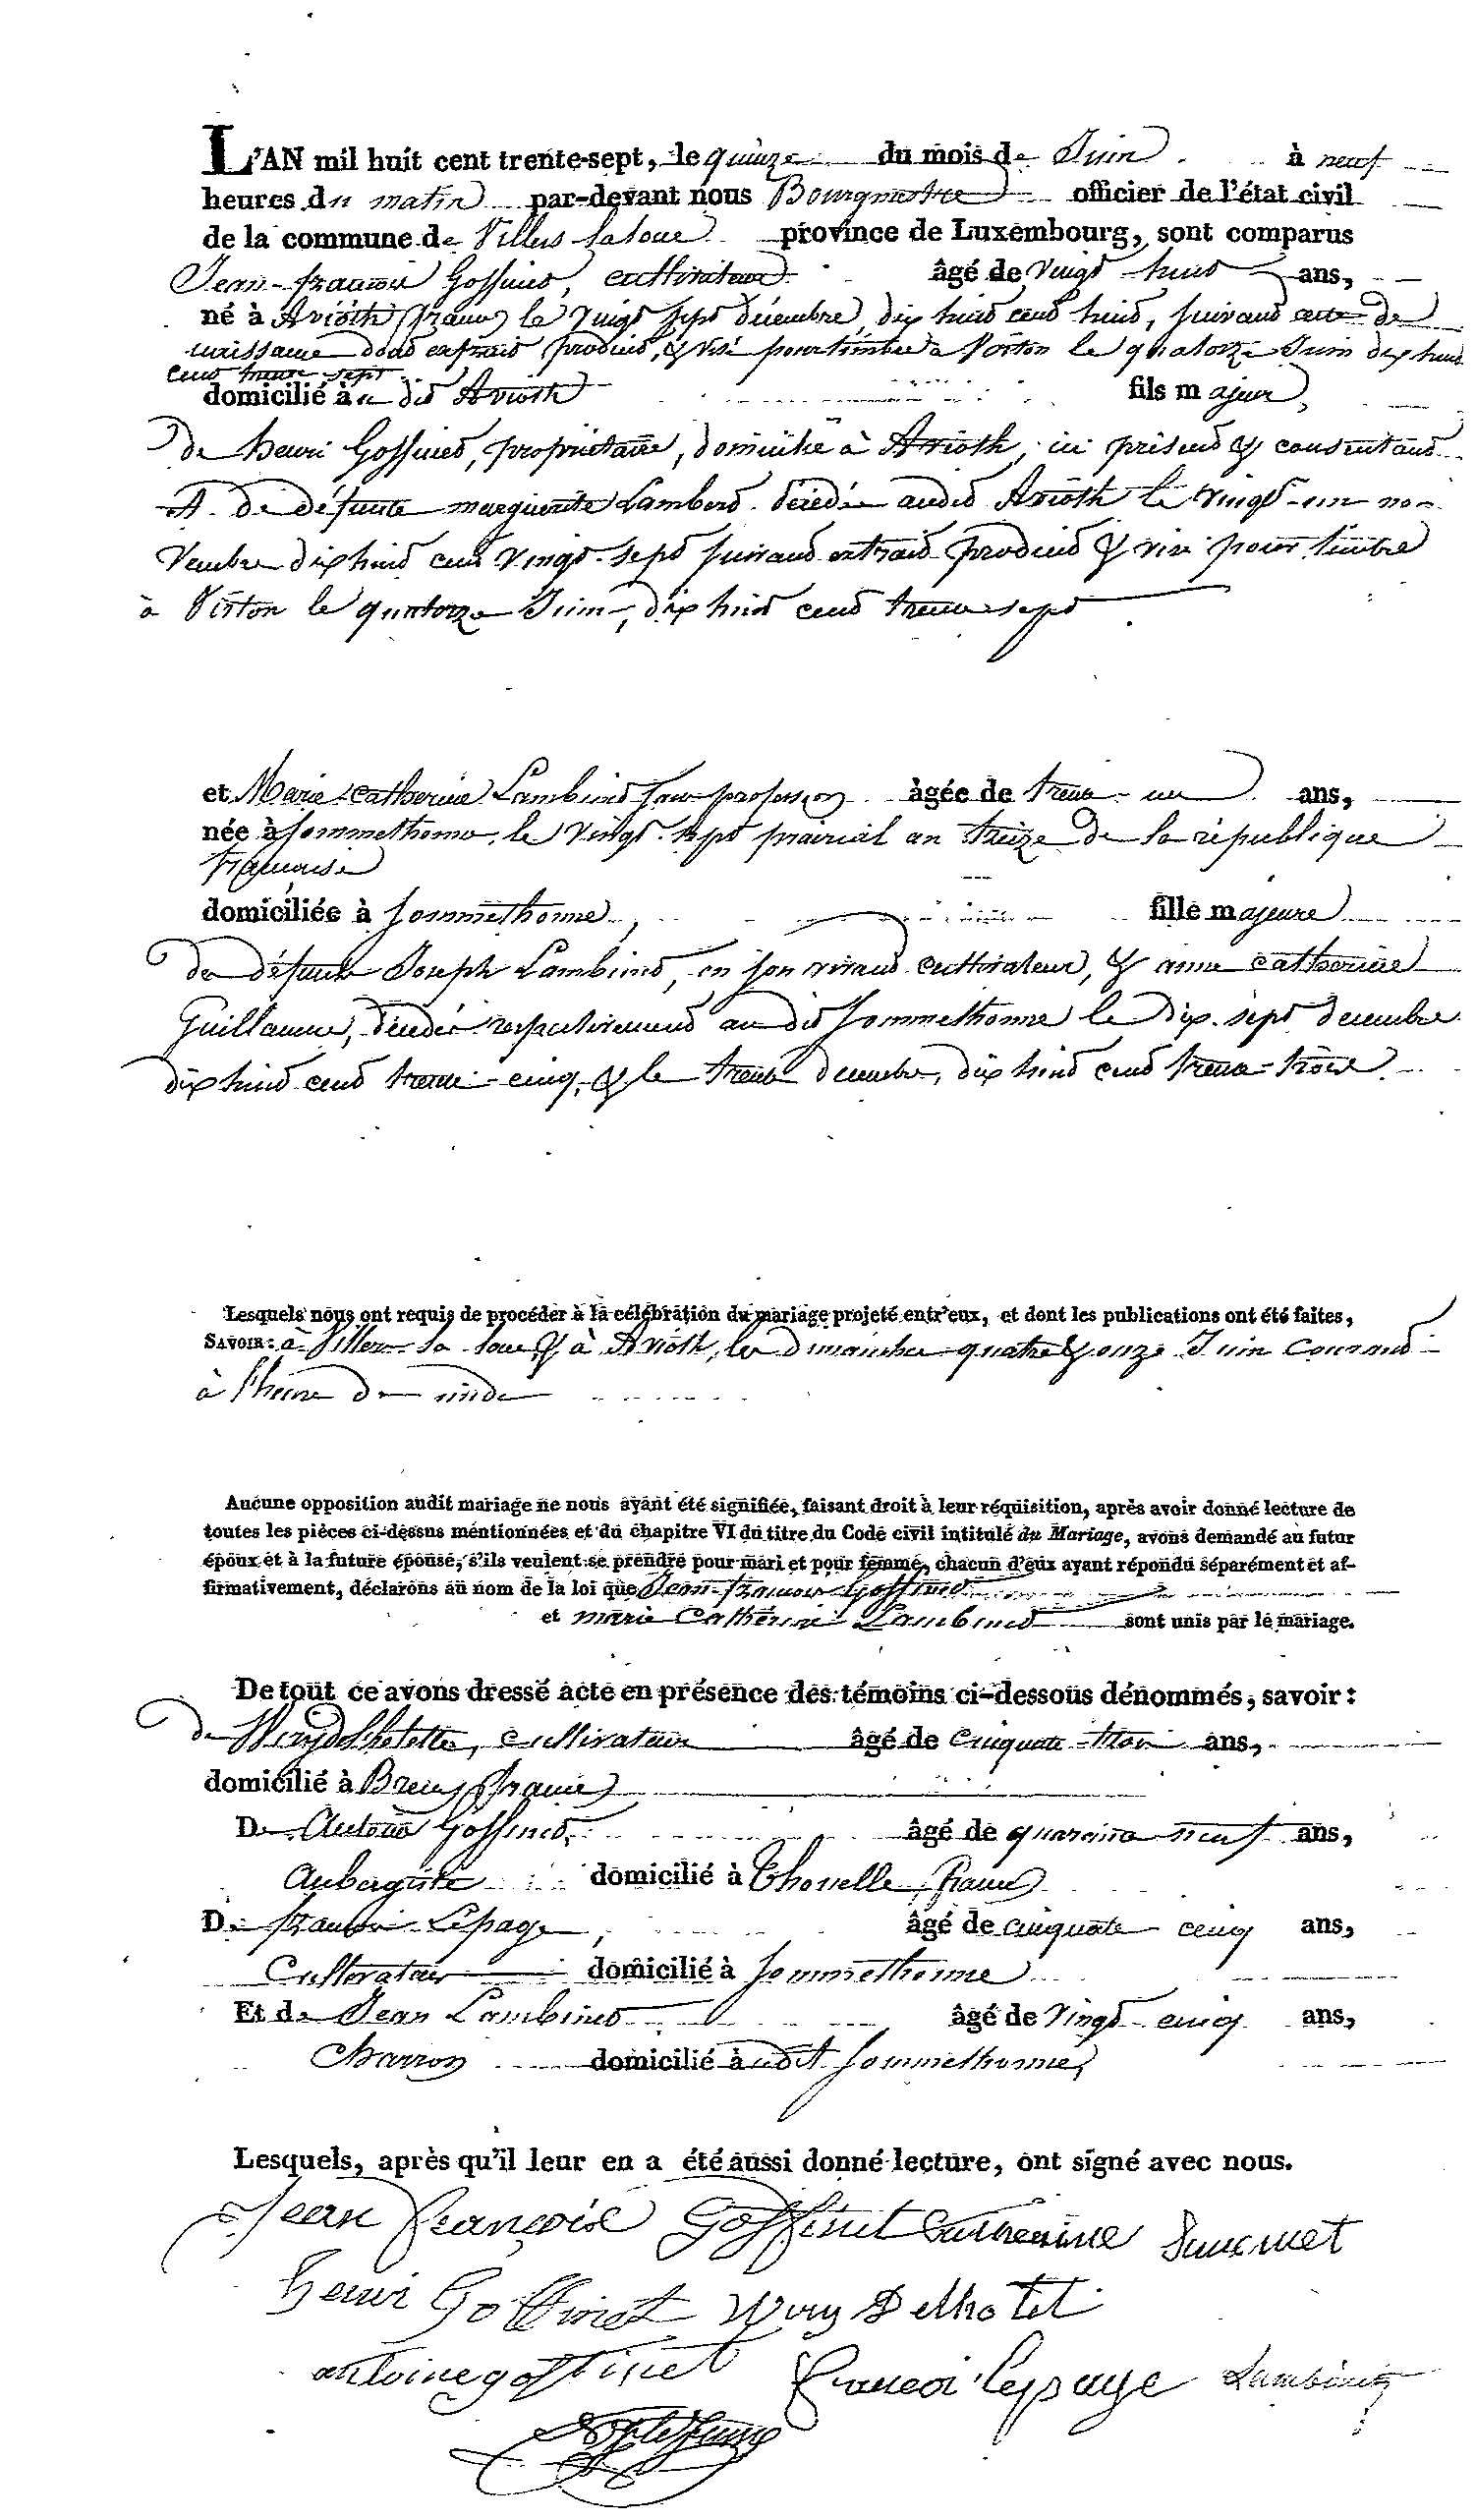 L'AN mil huit cent trente-sept, le quinze du mois de Juin à neuf
heures du matin par-devant nous Bourgmestre officier de l'état civil
de la commune de Villers la loue province de Luxembourg, sont comparus
Jean-françois Goffinet, cultivateur âgé de vingt-huit ans,
né à Avioth (france) le vingt sept décembre dix huit cent huit, suivant acte de
naissance dont extrait produit, & visé pour timbre à Virton le quatorze Juin dix huit
cent trente sept
domicilié à u dit Avioth fils majeur,
de henri Goffinet, propriétaire, domicilié à Avioth, ici présent & consentant
& de défunte marguerite Lambert décédée audit Avioth le vingt-un no-
vembre dix huit cent vingt-sept suivant extrait produit & visé pour timbre
à Virton le quatorze Juin, dix huit cent trente sept
et Marie-catherine Lambinet sans profession âgée de trente-un ans,
née à Sommethonne, le vingt-sept prairial an treize de la république
française
domiciliée à Sommethonne, fille majeure
de défunts Joseph Lambinet, en son vivant cultivateur, & anne catherine
Guillaume, décédés respectivement au dit Sommethonne le dix-sept décembre
dix huit cent trente-cinq, & le trente décembre, dix huit cent trente-trois
Lesquels nous ont requis de procéder à la célébration du mariage projeté entr'eux, et dont les publications ont été faites,
SAVOIR: à Villers la loue & à Avioth, les dimanches quatre & onze Juin courant
à l'heure de midi
Aucune opposition audit mariage ne nous ayant été signifiée, faisant droit à leur réquisition, après avoir donné lecture de
toutes les pièces ci-dessus mentionnées et du chapitre VI du titre du Code civil intitulé du Mariage, avons demandé au futur
époux et à la future épouse, s'ils veulent se prendre pour mari et pour femme, chacun d'eux ayant répondu séparément et af-
firmativement, déclarons au nom de la loi que Jean-françois Goffinet
et marie Catherine Lambinet sont unis par le mariage.
De tout ce avons dressé acte en présence des témoins ci-dessous dénommés, savoir:
de Wary Delhotelle, cultivateur âgé de cinquante-trois ans,
domicilié à Breux (france)
De Antoine Goffinet, âgé de quarante neuf ans,
Aubergiste domicilié à Thonelle, france
De francois Lepage, âgé de cinquante-cinq ans,
Cultivateur domicilié à Sommethonne
Et de Jean Lambinet âgé de vingt-cinq ans,
Charron domicilié à udit Sommethonne,
Lesquels, après qu'il leur en a été aussi donné lecture, ont signé avec nous.
Jean françois Goffinet Catherine
henri Goffinet Wary Delhotel
antoine goffinet francoi lepage Lambinet